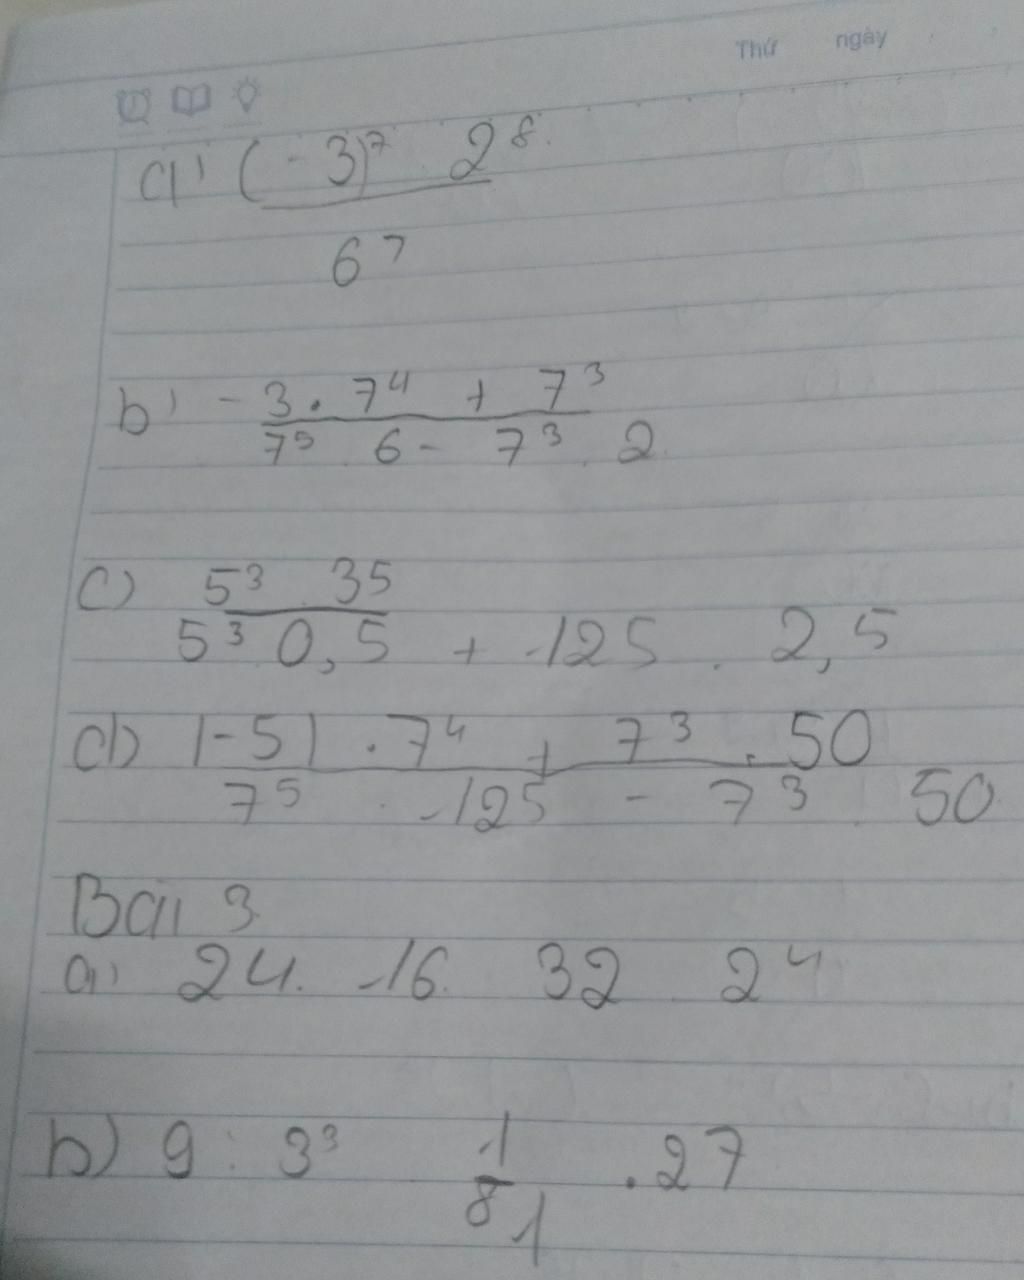 Thứ ngày
a) (-3)⁷ . 2⁸
6⁷
b) -3 . 7⁴ + 7³
7⁵ . 6 - 7³ . 2
c) 5³ . 35
5³ 0,5 + 125 . 2,5
d) |-5| . 7⁴ + 7³ . 50
7⁵ . 125 - 7³ . 50
Bài 3
a) 24 . 16 . 32 . 2⁴
b) 9 : 3³ 1/81 . 27